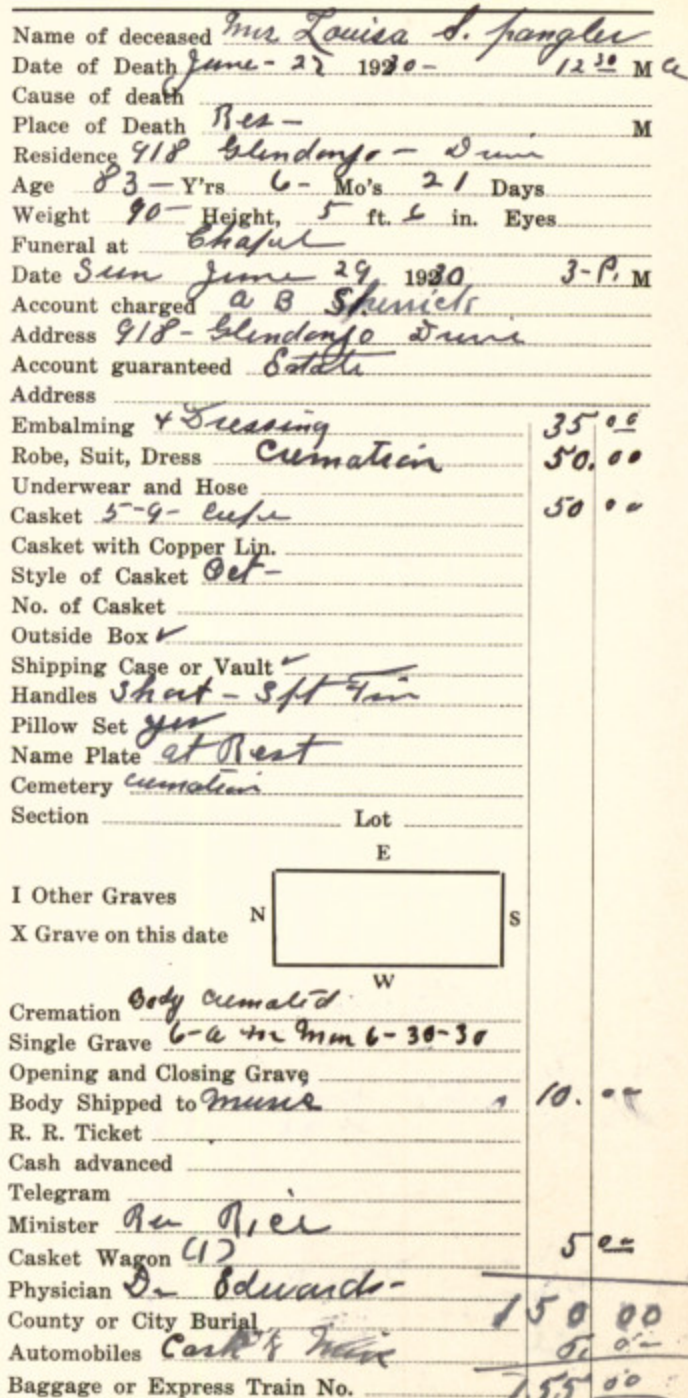 Name of deceased Mrs Louisa S. pangler
Date of Death June - 27 1930 - 12 30 M a
Cause of death
Place of Death Res - M
Residence 918 Glendonjo - Drive
Age 83 - Y'rs 6 - Mo's 21 Days
Weight 90 - Height, 5 ft. 6 in. Eyes
Funeral at Chapel
Date Sun June 29 1930 3 - P. M
Account charged A B Sherrick
Address 918 - Glendonjo Drive
Account guaranteed Estate
Address
Embalming + Dressing 35 00
Robe, Suit, Dress Cremation 50. 00
Underwear and Hose
Casket 5-9- Crepe 50 00
Casket with Copper Lin.
Style of Casket Oct -
No. of Casket
Outside Box ✓
Shipping Case or Vault ✓
Handles Short - 3pt Tin
Pillow Set yes
Name Plate at Rest
Cemetery cremation
Section Lot
E
I Other Graves
N S
X Grave on this date
W
Cremation Body cremated
Single Grave 6-a m Mon 6-30-30
Opening and Closing Grave
Body Shipped to Music 10. 00
R. R. Ticket
Cash advanced
Telegram
Minister Rev Rice
Casket Wagon (1) 5 00
Physician Dr Edwards -
County or City Burial 150 00
Automobiles Cash 5. 00
Baggage or Express Train No. 155 00